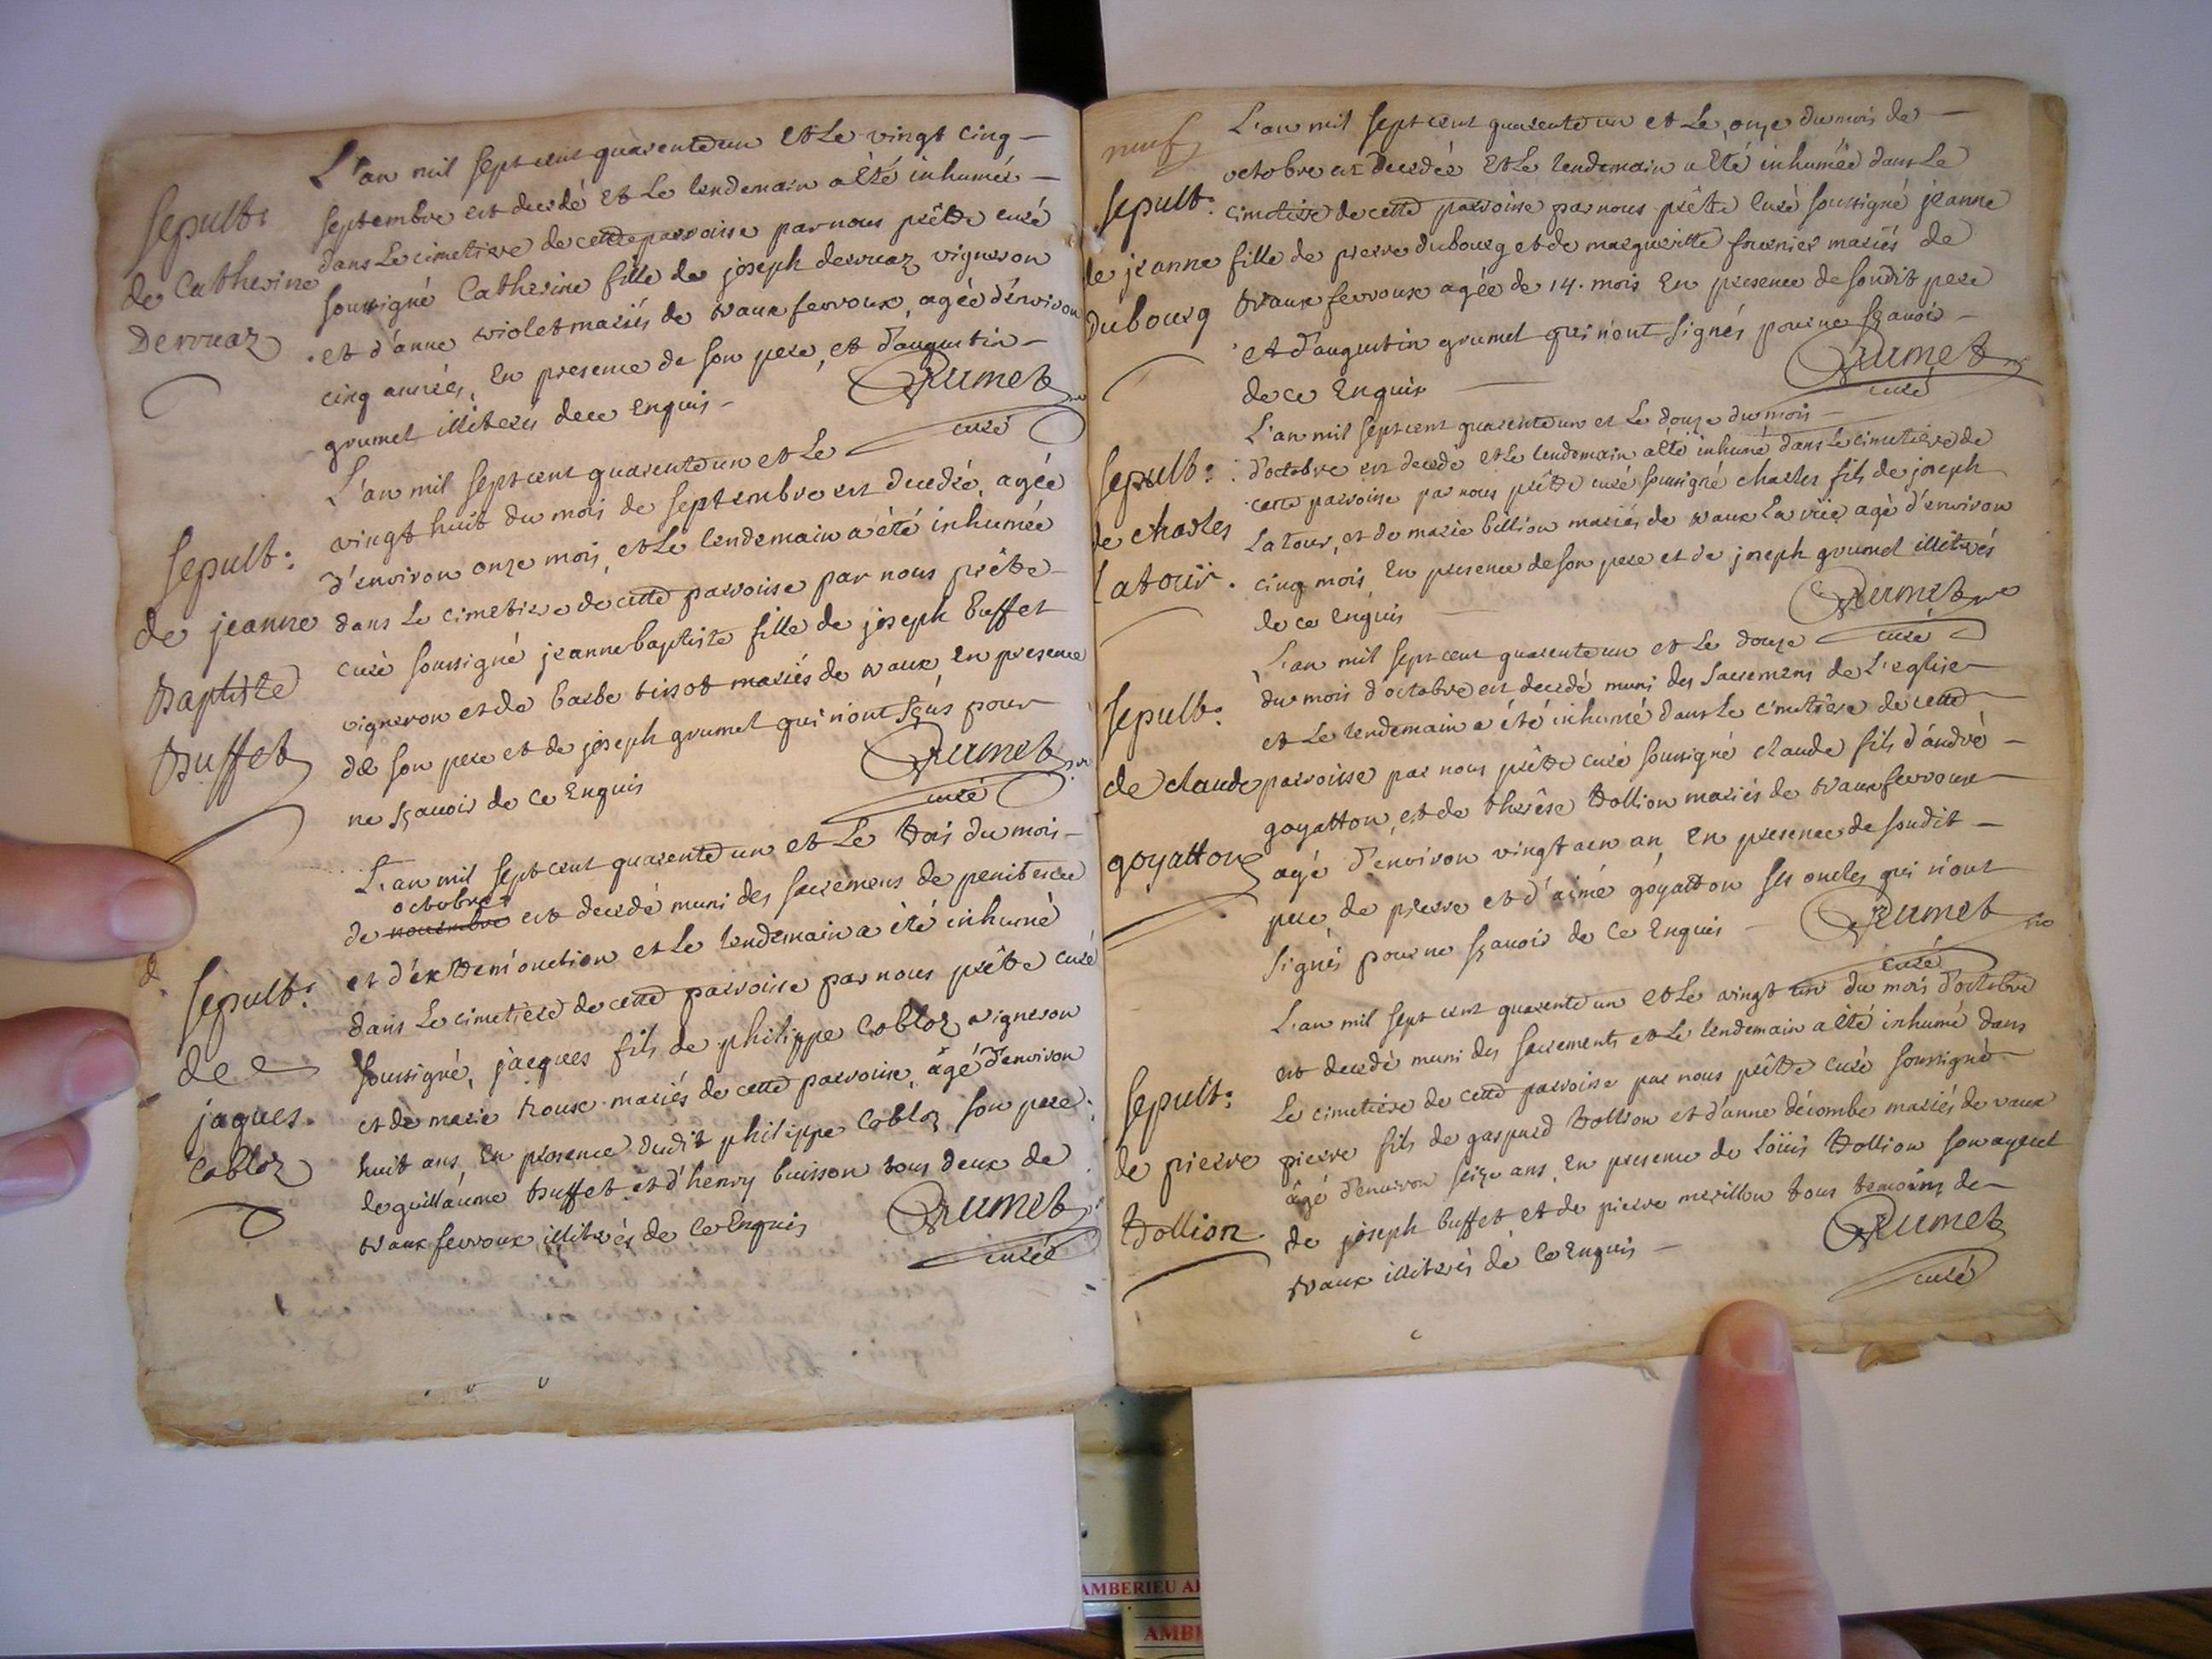 Sepult:
de Catherine
Dervieaz
L'an mil sept cent quarente un et Le vingt cinq –
septembre est decedé et Le lendemain a été inhumée –
dans Le cimetiere de cette parroisse par nous prêtre curé
soussigné Catherine fille de joseph dervieaz vigneron
et d'anne violet mariés de vaux fevroux, agée d'environ
cinq années, En presence de son pere, et d'augustin –
grumet illiterés de ce Enquis –
Grumet
curé
Sepult:
de jeanne
Baptiste
Buffet
L'an mil sept cent quarente un et Le
vingt huit du mois de septembre est decedée, agée
d'environ onze mois, et Le lendemain a été inhumée
dans Le cimetiere de cette parroisse par nous prêtre
curé soussigné jeanne baptiste fille de joseph Buffet
vigneron et de barbe tissot mariés de vaux, en presence
de son pere et de joseph grumet qui n'ont signés pour
ne sçavoir de ce Enquis
Grumet
curé
Sepult:
de
jaques
Cobloz
L'an mil sept cent quarente un et Le trois du mois –
octobre
de novembre est decedé muni des sacremens de penitence
et d'extrem'onction et Le lendemain a été inhumé
dans Le cimetiere de cette parroisse par nous prêtre curé
soussigné, jacques fils de philippe Cobloz vigneron
et de marie troux mariés de cette parroisse, âgé d'environ
huit ans, En presence dudit philippe Cobloz son pere
de guillaume Buffet et d'henry buisson tous deux de
vaux fevroux, illiterés de ce Enquis
Grumet
curé
neuf
Sepult:
de jeanne
Dubourg
L'an mil sept cent quarente un et Le onze du mois de –
octobre est decedée et Le lendemain a été inhumée dans Le
cimetiere de cette parroisse par nous prêtre curé soussigné jeanne
fille de pierre dubourg et de margueritte fournier mariés de
vaux fevroux agée de 14. mois En presence de sondit pere
et d'augustin grumet qui n'ont signés pour ne sçavoir –
de ce Enquis
Grumet
curé
Sepult:
de charles
Latour.
L'an mil sept cent quarente un et Le douze du mois –
d'octobre est decedé et Le lendemain a été inhumé dans Le cimetiere de
cette parroisse par nous prêtre curé soussigné charles fils de joseph
Latour, et de marie billion mariés de vaux La agé d'environ
cinq mois, En presence de son pere et de joseph grumet illiterés
de ce Enquis
Grumet
curé
Sepult:
de claude
goyatton
L'an mil sept cent quarente un et Le douze
du mois d'octobre est decedé muni des sacremens de L'eglise
et Le lendemain a été inhumé dans Le cimetiere de cette
parroisse par nous prêtre curé soussigné claude fils d'andré –
goyatton, et de therêse trollion mariés de vaux fevroux
agé d'environ vingt un an, En presence de sondit –
pere, de pierre et d'aimé goyatton ses oncles qui n'ont
signés pour ne sçavoir de ce Enquis –
Grumet
curé
Sepult:
de pierre
trollion
L'an mil sept cent quarente un et Le vingt un du mois d'octobre
est decedé muni des sacrements et Le lendemain a été inhumé dans
Le cimetiere de cette parroisse par nous prêtre curé soussigné
pierre fils de gaspard trollion et d'anne décombe mariés de vaux
âgé d'environ seize ans, En presence de Loüis trollion son ayeul
de joseph buffet et de pierre merillon tous temoins de –
vaux illiterés de ce Enquis –
Grumet
curé
AMBERIEU